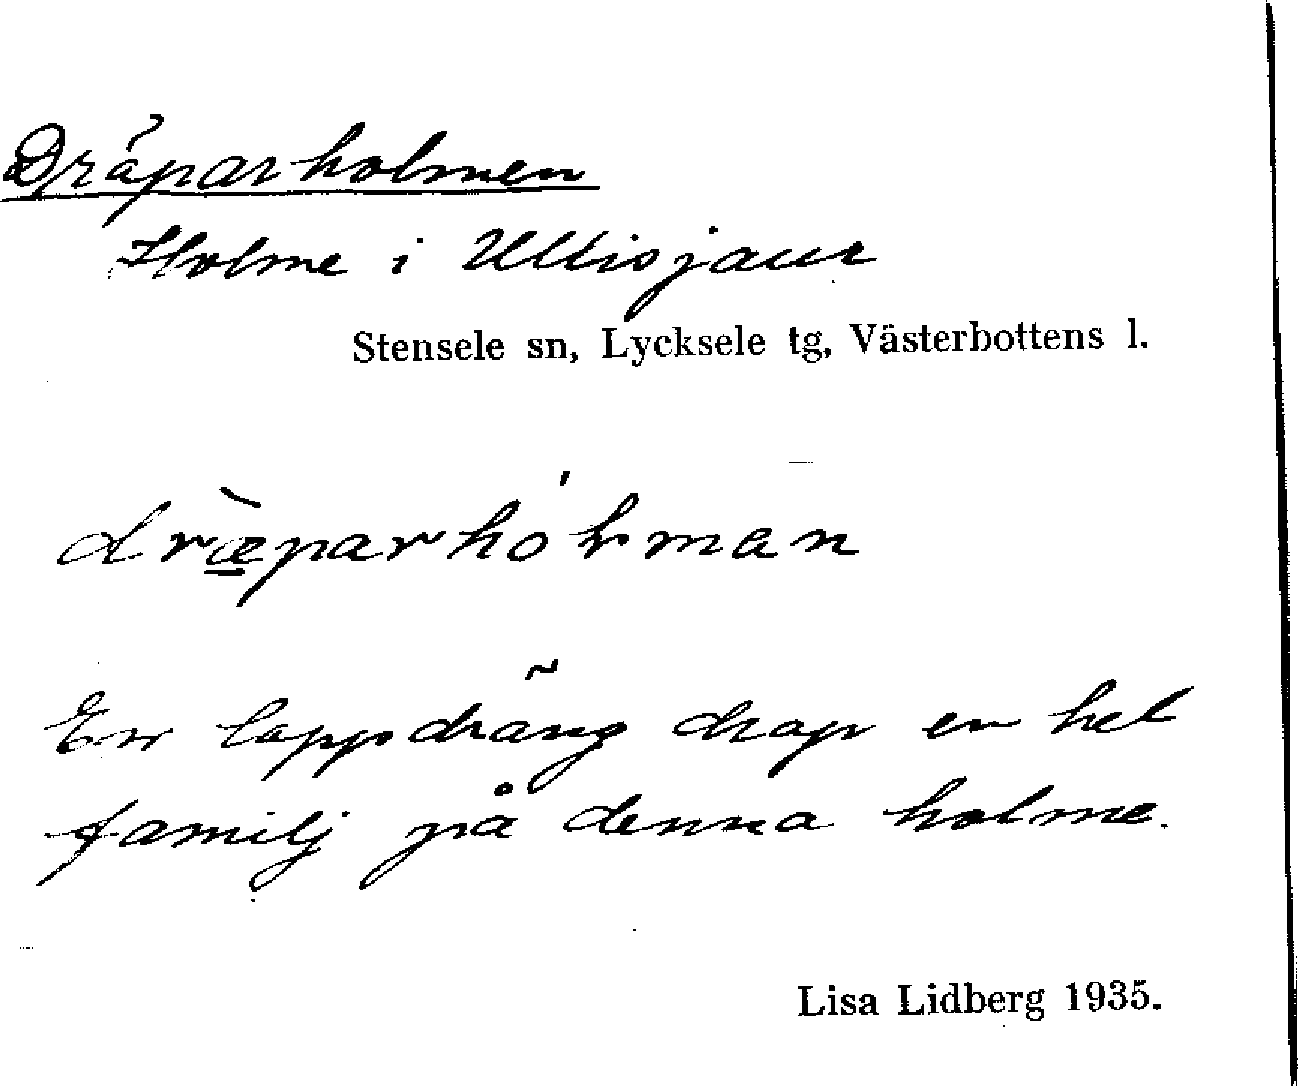 Dräparholmen
Holme i Ullisjaur
Stensele sn, Lycksele tg, Västerbottens l.
dræ̀parhóƚman
En lappdräng drap en hel
familj på denna holme.
Lisa Lidberg 1935.